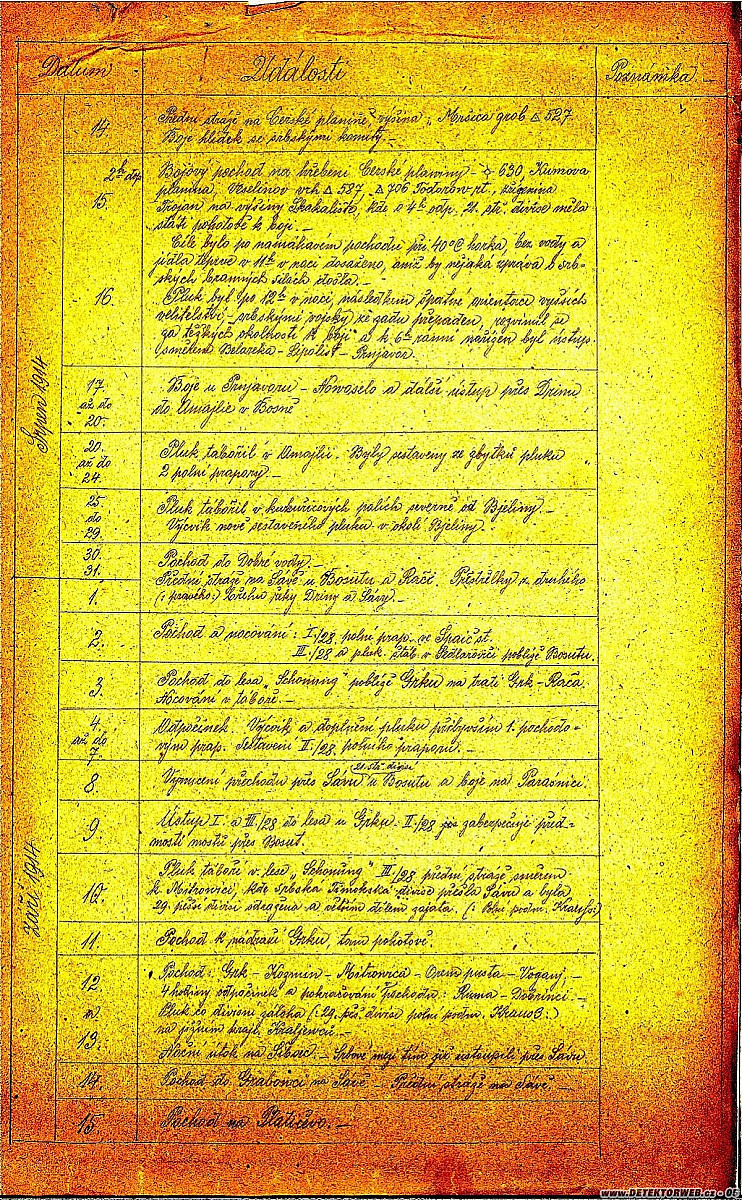 Datum Události Poznámka.
Srpen 1914
14. Přední stráže na Cerské planině výšina „Mršića grob △ 527.
Boje hlídek se srbskými komity.—
2h dop. Bojový pochod na hřebeni Cerské planiny - 630, Kumova
15. planina, Veselinov vrh △ 587, △ 706 Todorov rt.,
Trojan na výšiny Skakaliste, kde o 4h odp. 21. stř. divise měla
státi pohotově k boji.—
Cíle bylo po namáhavém pochodu při 40°C horka, bez vody a
jídla teprve v 11h v noci dosaženo, aniž by nějaká zpráva o srb-
ských branných silách došla.—
16. Pluk byl po 12h v noci, následkem špatné orientace vyšších
velitelství srbskými vojsky ze zadu přepaden, rozvinul se
za těžkých okolností k boji a k 6h ranní nařízen byl ústup
směrem Belareka - Lipolist - Prnjavor.
17. až do 20. Boje u Prnjavoru - Novoselo a další ústup přes Drinu
do Amajlie v Bosně
20. až do 24. Pluk tábořil v Amajlii. Byly sestaveny ze zbytků pluku
2 polní prapory.—
25. do 29. Pluk tábořil v kukuřicových polích severně od Bjeliny.—
Výcvik nově sestaveného pluku v okolí Bjeliny.
30. Pochod do Dobré vody.—
31. Přední stráže na Sávě u Bosutu a Rače. Přestřelky z druhého
Září 1914
1. (: pravého:) břehu řeky Driny a Sávy.—
2. Pochod a nocování: I./28 polní prap. ve
III./28 a pluk. štáb v poblíže Bosutu.
3. Pochod do lesa „Schonung" poblíže Grku na trati Grk - Rača.
Nocování v táboře.—
4. až do 7. Odpočinek. Výcvik a doplnění pluku přibyvším 1. pochodo-
vým prap. Sestavení II./28. polního praporu.—
8. Vynucení přechodu 21. stř. divisí přes Sávu u Bosutu a boje na Parašnici.
9. Ústup I. a III./28 do lesa u Grku. II./28 zabezpečuje před-
mostí mostů přes Bosut.
10. Pluk táboří v lese „Schonung" III./28 přední stráže směrem
k Mitrovici, kde srbská Timokská divise přešla Sávu a byla
29. pěší divisí odražena a větším dílem zajata. (: Polní podm.
11. Pochod k nádraží Grku, tam pohotově.
12 a 13. Pochod: Grk - Kuzmin - Mitrovica - pusta - Voganj.—
4 hodiny odpočinek a pokračování pochodu: Ruma - Dobrinci.—
Pluk co divisní záloha (: 29. pěš. divise polní podm. Kraus:)
na jižním kraji Kraljevci.—
Noční útok na Šibač.— Srbové mezi tím již ustoupili přes Sávu.
14. Pochod do Grabovci na Sávě.— Přední stráže na Sávě.—
15 Pochod na Platičevo.—
www.DETEKTORWEB.cz